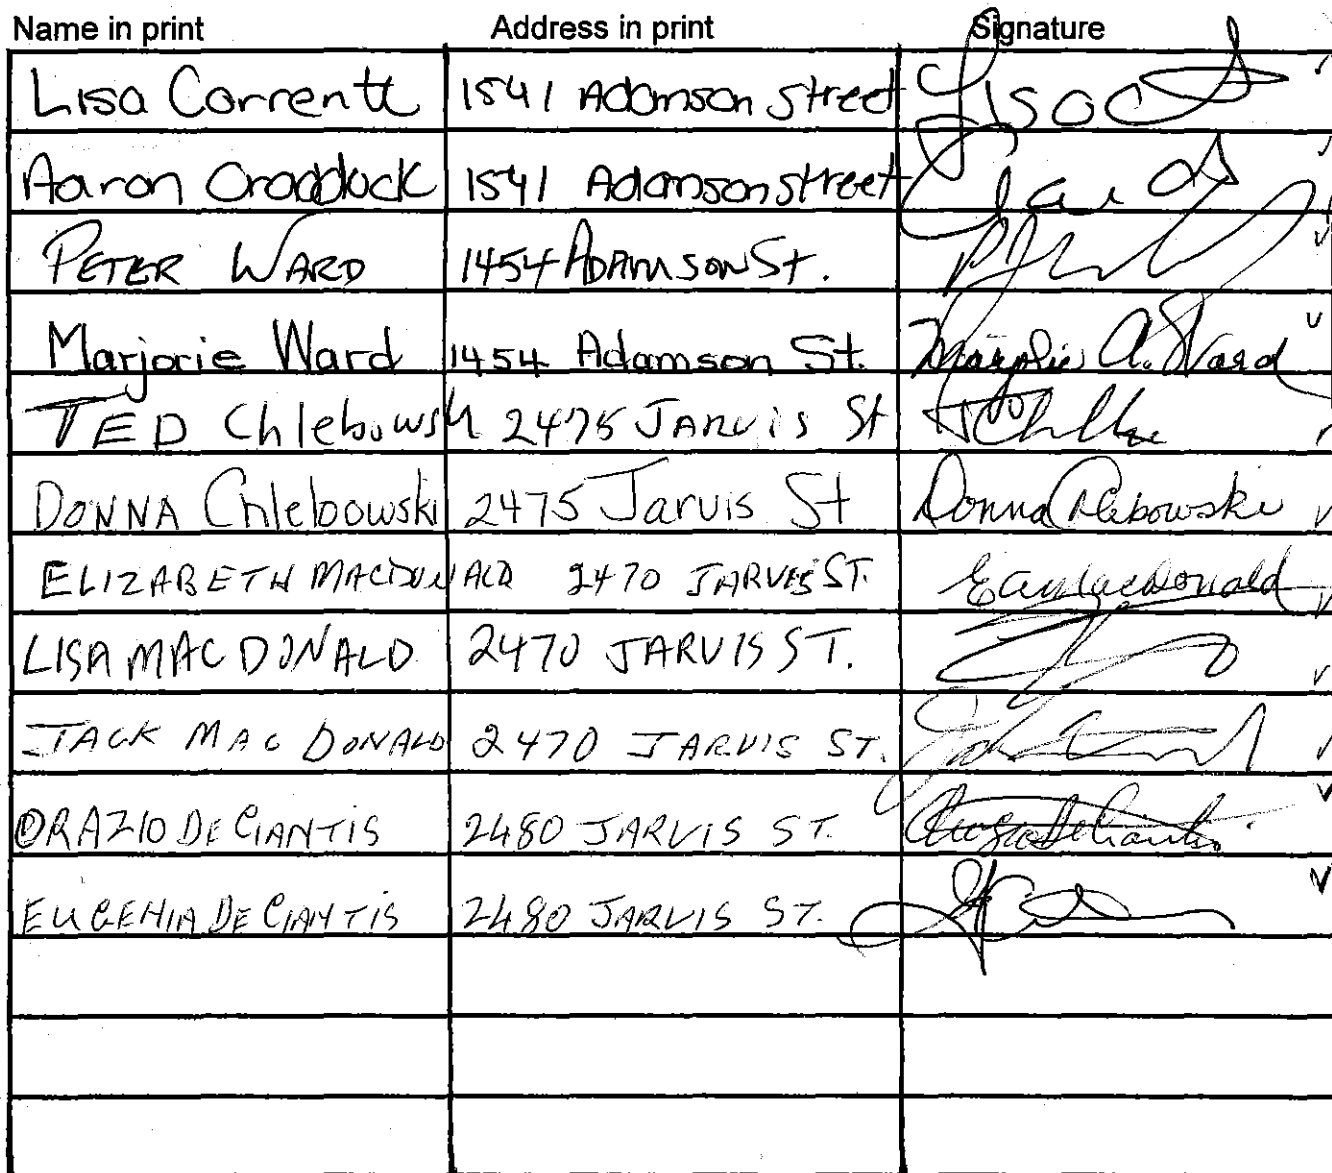 Name in print Address in print Signature
Lisa Correntt 1541 Adamson Street
Aaron Craddock 1541 Adamson street
PETER WARD 1454 ADAMSON St.
Marjorie Ward 1454 Adamson St. Marjorie A. Ward
TED Chlebowski 2475 JARVIS St
DONNA Chlebowski 2475 Jarvis St Donna Chlebowski
ELIZABETH MACDONALD 2470 JARVIS ST. EAMacDonald
LISA MACDONALD 2470 JARVIS ST.
JACK MACDONALD 2470 JARVIS ST.
ORAZIO DECIANTIS 2480 JARVIS ST.
EUGENIA DECIANTIS 2480 JARVIS ST.